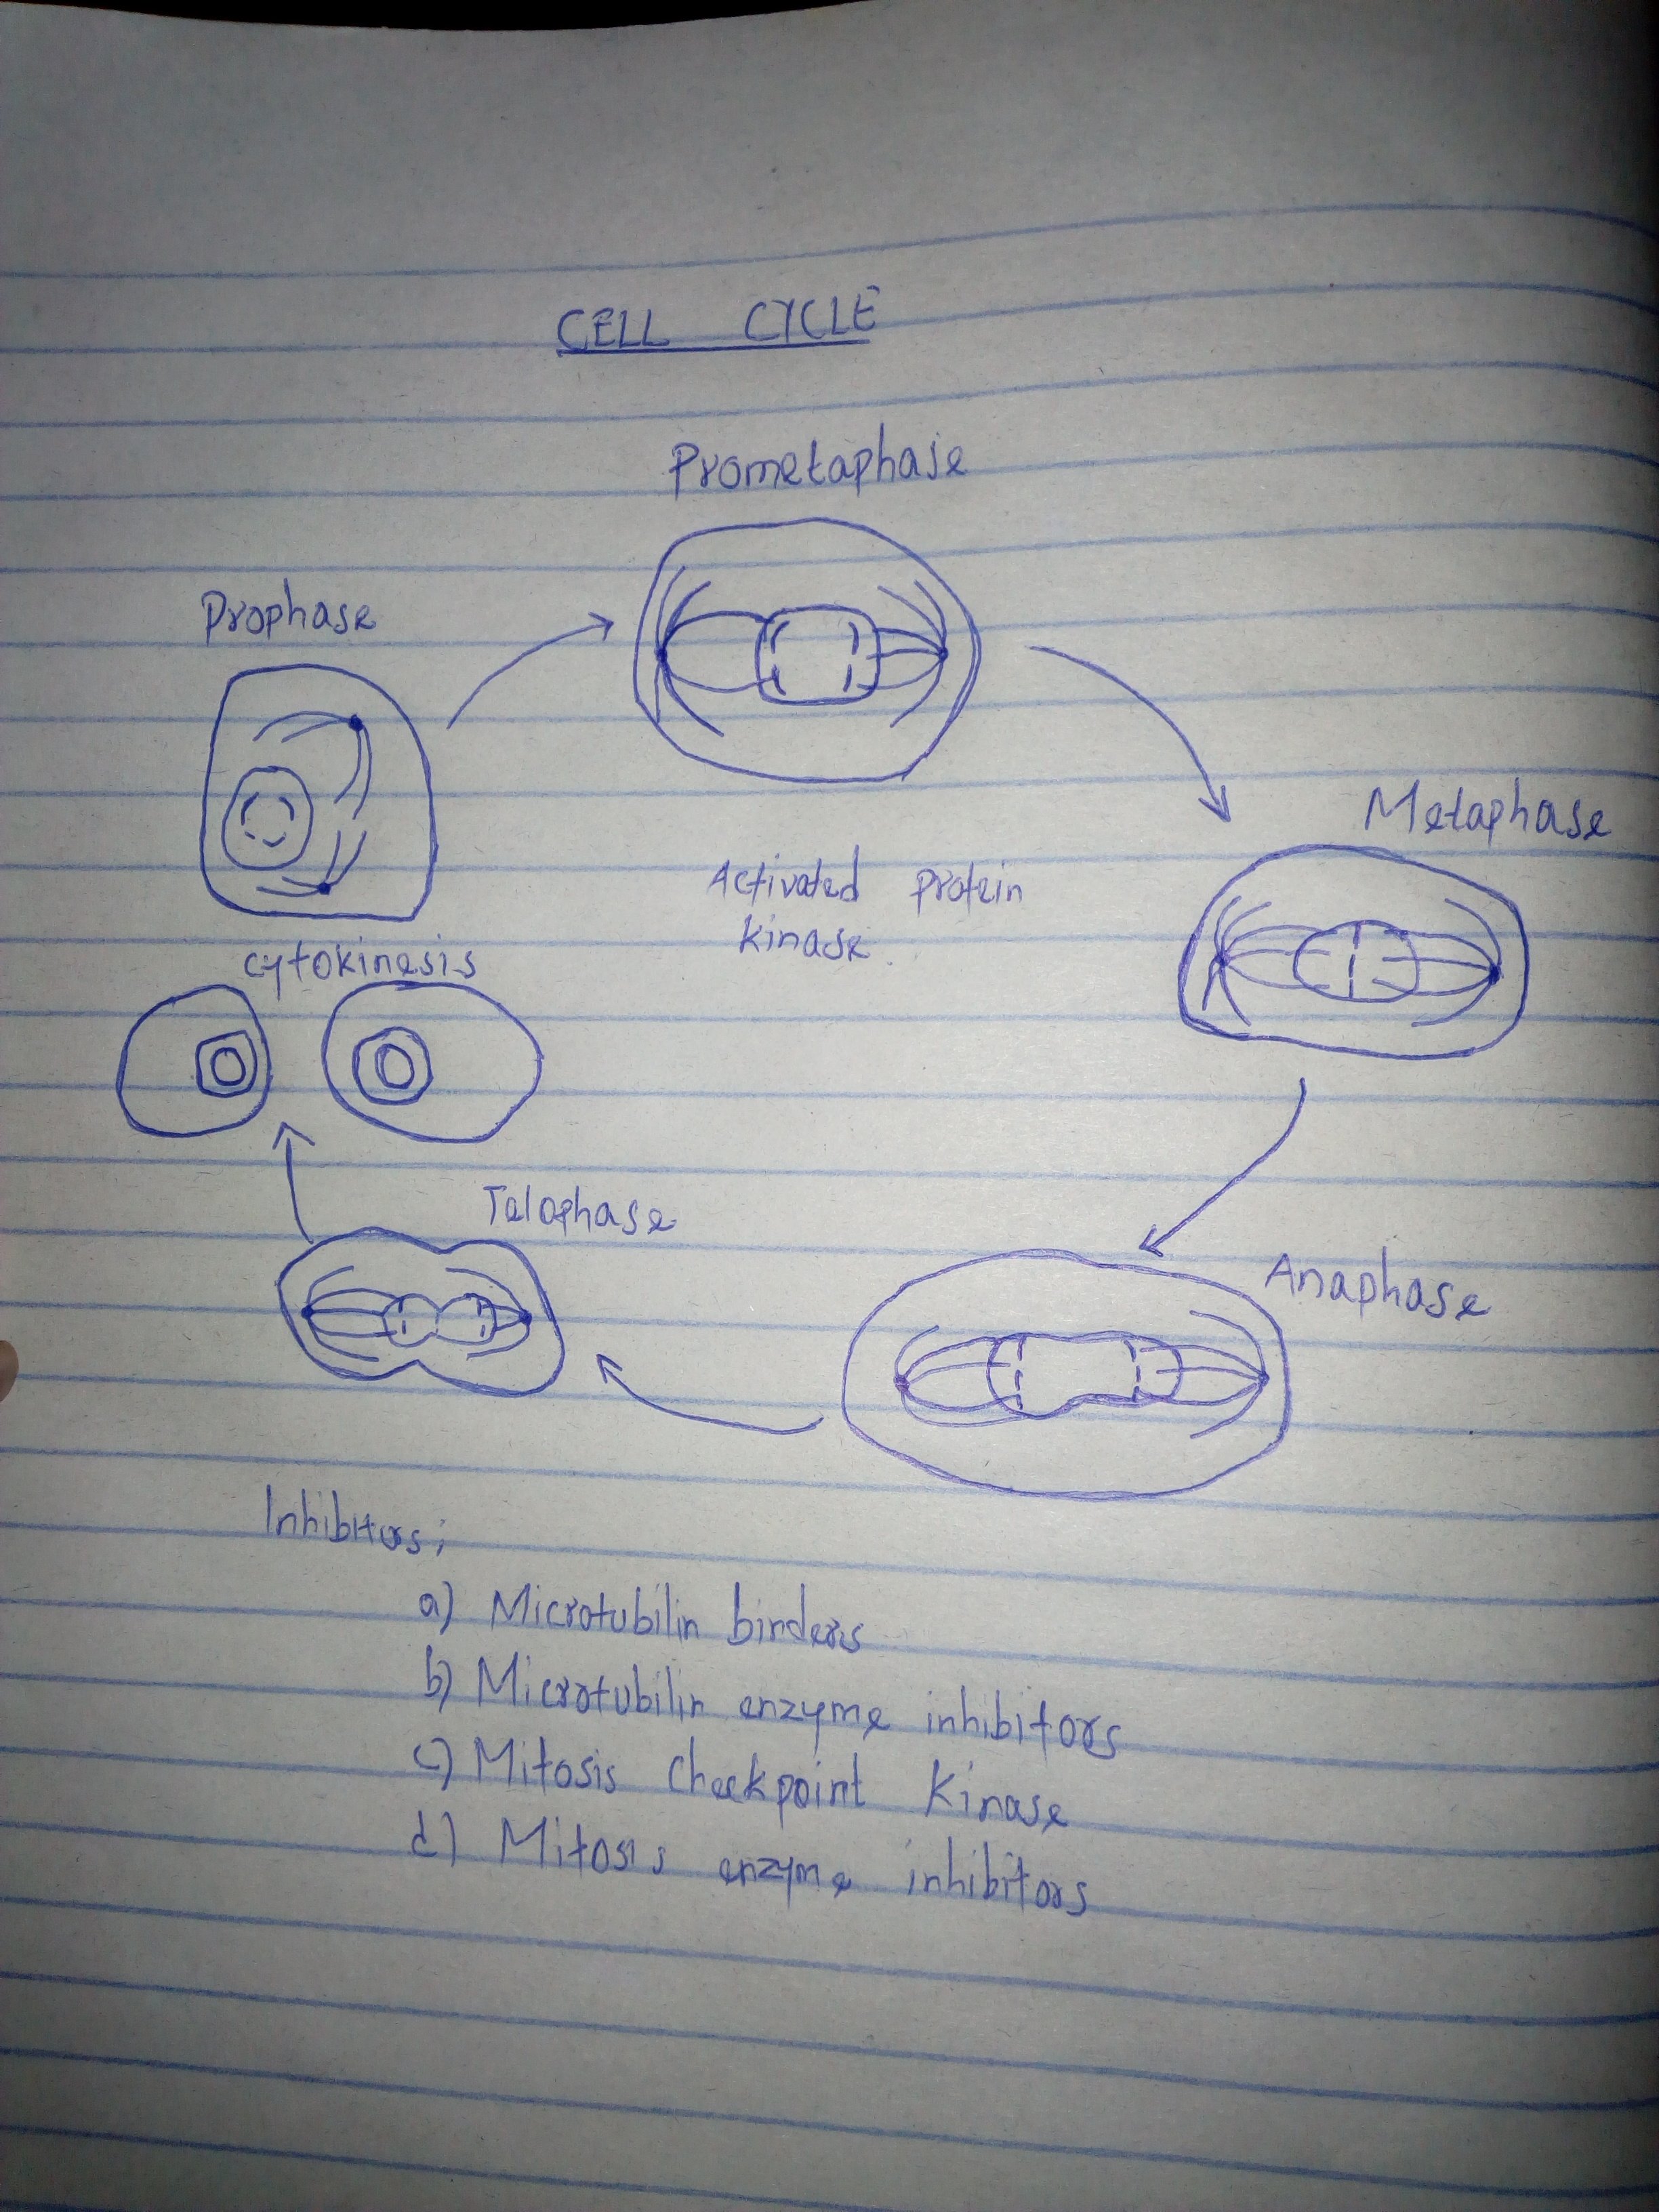 CELL CYCLE
Prometaphase
Prophase
Metaphase
Activated protein
kinase.
cytokinesis
Telophase
Anaphase
Inhibitors;
a) Microtubilin binders
b) Microtubilin enzyme inhibitors
c) Mitosis checkpoint Kinase
d) Mitosis enzyme inhibitors